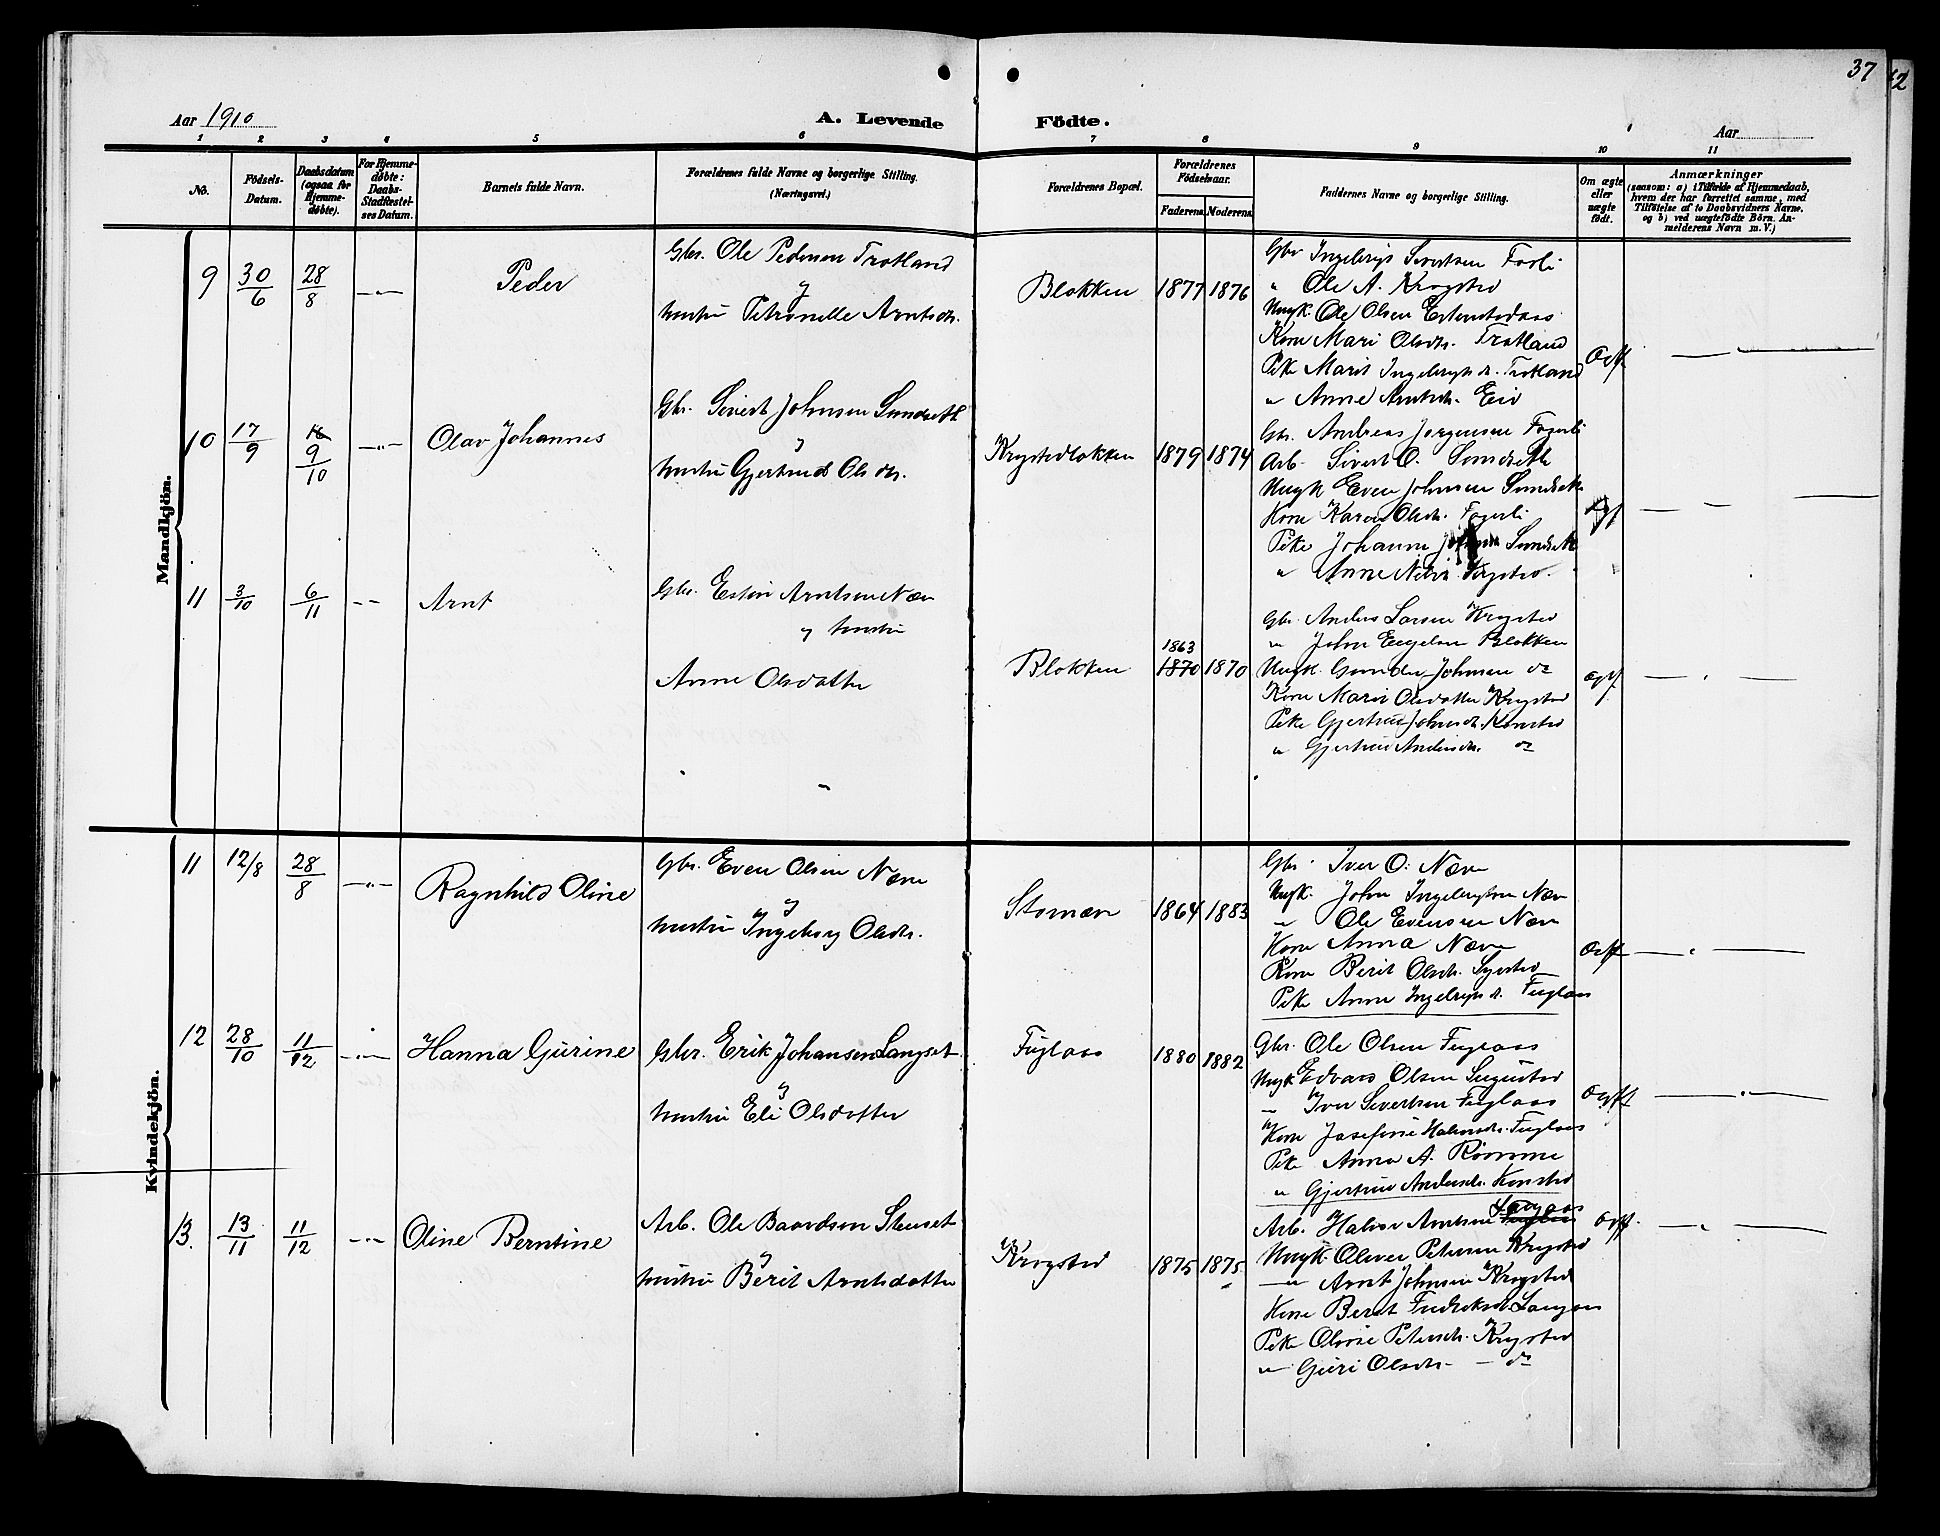 37
Aar 1910
A. Levende Födte.
Aar
1 2 3 4 5 6 7 8 9 10 11
No.
Födsels-Datum.
Daabsdatum (ogsaa for Hjemmedöbte).
For Hjemmedöbte: Daabs-Stadfæstelses Datum.
Barnets fulde Navn.
Forældrenes fulde Navne og borgerlige Stilling. (Næringsvei.)
Forældrenes Bopæl.
Forældrenes Födselsaar.
Faderens Moderens
Faddernes Navne og borgerlige Stilling.
Om ægte eller uægte födt.
Anmærkninger
(saasom: a) i Tilfælde af Hjemmedaab, hvem der har forrettet samme, med Tilföielse af to Daabsvidners Navne, og b) ved uægtefödte Börn, Anmelderens Navn m. V.)
Mandkjön.
9 30/6 28/8 —"— Peder
Gbr. Ole Pedersen Trotland
og
hustru Petronelle Arntsdtr.
Blokken 1877 1876
Gbr Ingebrigt Sivertsen Fosli
" Ole A. Krogstad
Ungk. Ole Olsen
Kone Mari Olsdtr. Trotland
Pike Marit Ingebrigtsd. Trotland
" Anne Arntsdr. Eid
10 17/9 9/10 —"— Olav Johannes
Gbr. Sivert Johnsen Sundseth
og
hustru Gjertrud Olsdtr.
Krogstadblokken 1879 1874
Gbr. Andreas Jørgensen Fagerli
Arb. Sivert O. Sundseth
Ungk Even Johnsen Sundseth
Kone Karen Olsdr. Fagerli
Pike Johanne Sundseth
" Anne Krogstad.
11 3/10 6/11 — — Arnt
Gbr. Esten Arntsen Næv
og hustru
Anne Olsdatter
Blokken 1863 1870 1870
Gbr. Anders Larsen Krogstad
" John Blokken
Ungk. Gunder Johnsen do
Kone Marit Olsdatter Krogstad
Pike Gjertrud Johnsdr.
" Gjertrud Andersdr. do
Kvindekjön.
11 12/8 28/8 —"— Ragnhild Oline
Gbr. Even Olsen Næve
og
hustru Ingeborg Olsdtr.
1864 1883
Gbr Iver O. Næve
Ungk. John Ingebrigtsen Næv
" Ole Evensen Næve
Kone Anna Næve
Kone Berit Olsdr.
Pike Anne Ingebrigtsd. Fuglaas
12 28/10 11/12 —"— Hanna Gurine
Gbr. Erik Johansen Langset
og
hustru Eli Olsdatter
Fuglaas 1880 1882
Gbr. Ole Olsen Fuglaas
Ungk Edvard Olsen
" Iver Sivertsen Fuglaas
Kone Josefine Fuglaas
Pike Anna A. Rømme
" Gjertrud Andersdr.
13. 13/11 11/12 —"— Oline Berntine
Arb. Ole Baardsen Stenset
og
hustru Berit Arntsdatter
Krogstad 1875 1875
Arb. Halvor Arntsen Fuglaas Langaas
Ungk. Oliver Petersen Krogstad
—"— Arnt Johnsen Krogstad
Kone Beret Fredriksdr Langaas
Pike Oline Petersdr. Krogstad
" Guri Olsdr. — do